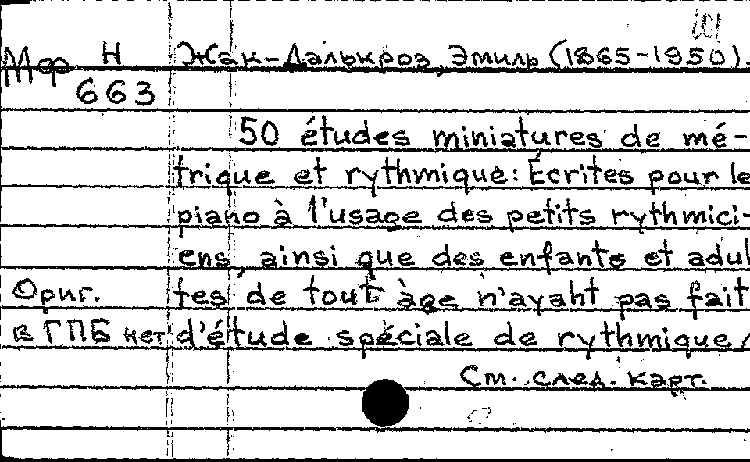 Мф Н Жак-Далькроз, Эмиль (1865-1950).
663
50 études miniatures de mé-
trique et rythmique: Écrites pour le
piano à l'usage des petits rythmici-
ens, ainsi que des enfants et adul
Ориг. tes de tout âge n'ayant pas fait
в ГПБ нет d'étude spéciale de rythmique/
См. след. карт.